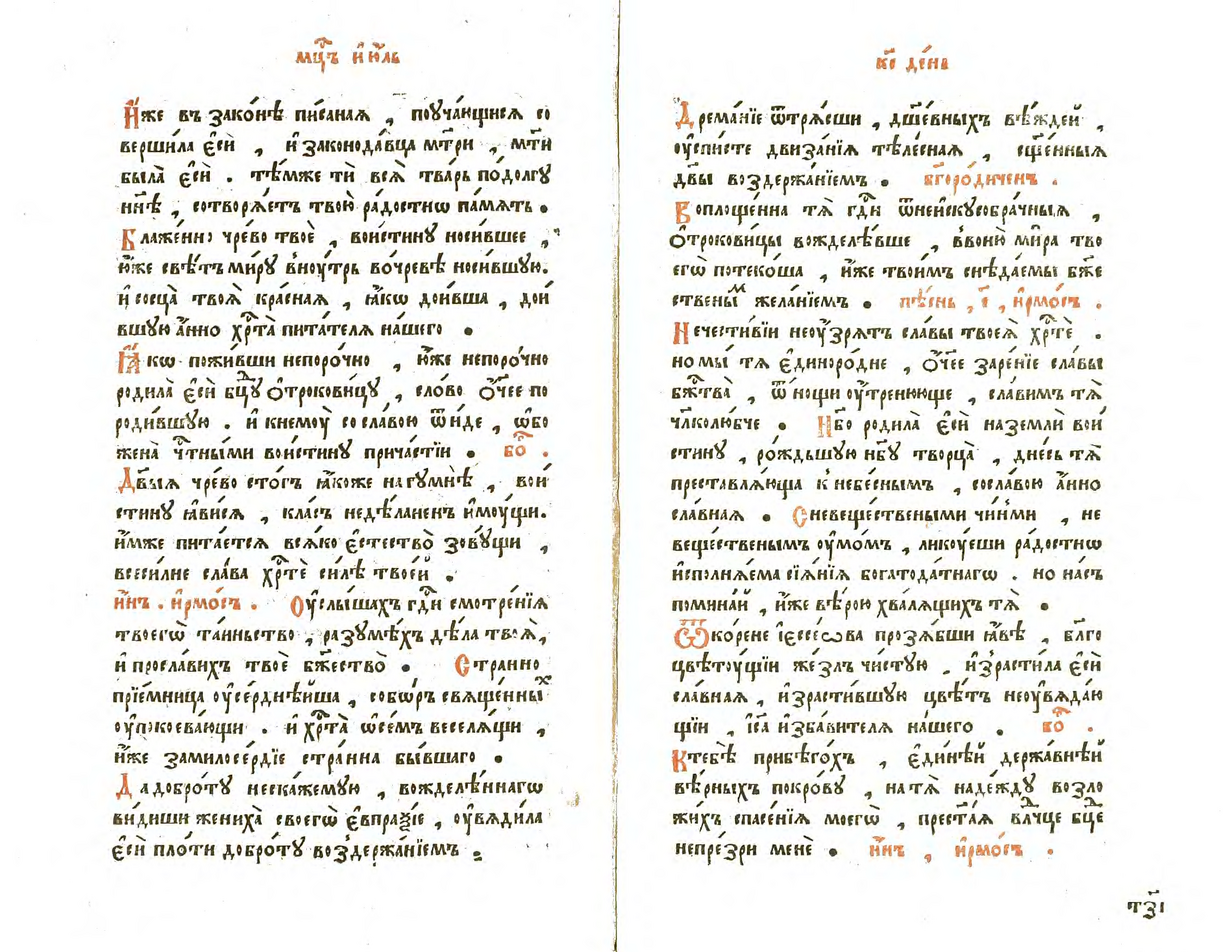 мц҇ъ и҆ю҆ль
И҆́же въ зако́нѣ пи́саная , поуча́ющися со
вершила є҆сѝ , и҆ законода́вца мт҃ри , мт҃и
была̀ є҆сѝ . тѣ́мже тѝ всѧ̀ тва́рь подолгꙋ
нн҃ѣ , сотворѧ́етъ твою̀ ра́достиѡ па́мять .
Блаже́нно чре́во твоѐ , вои́стинꙋ носи́вшее ,
ю҆́же свѣ́тъ ми́рꙋ внꙋ́трь во чре́вѣ носи́вшꙋю.
и҆ сосца̀ твоѧ̀ кра́сная , ꙗ҆́кѡ дои́вша , дои́
вшꙋю а҆́нно хрⷭ҇та̀ пита́теля на́шего .
Ꙗ҆́кѡ пожи́вши непоро́чно , ю҆́же непоро́чно
родила̀ є҆сѝ бцⷣꙋ ѻ҆трокови́цꙋ , сло́во ѻ҆́чее по
роди́вшꙋю . и҆ кнемꙋ̀ со сла́вою ѿи́де , ѡ҆бо
же́на чⷭ҇тными вои́стинꙋ прича́стїи . бо҇ .
Дв҃ыя чре́во сто́гъ ꙗ҆́коже на гꙋмнѣ̀ , вои́
стинꙋ ꙗ҆ви́ся , кла́съ недѣ́ланенъ и҆мꙋ́щи.
и҆́мже пита́ется вся́ко є҆стество̀ зовꙋ́щи ,
всеси́лне сла́ва хрⷭ҇тѐ си́лѣ твое́й .
и҆́нъ . и҆рмо́съ . Оу҆слы́шахъ гдⷭ҇и смотре́нїя
твоегѡ̀ та́иньство , разꙋмѣ́хъ дѣ́ла твоя̀,
и҆ просла́вихъ твоѐ бж҃ество̀ . Стра́нно
прїе́мница оу҆се́рднѣйша , собо́ръ свяще́нныⷯ
оу҆покоева́ющи . и҆ хрⷭ҇та̀ ѡ҆ се́мъ веселя́щи ,
и҆́же за милосе́рдїе стра́нна бы́вшаго .
Да добро́тꙋ неска́жемꙋю , вожделѣ́ннагѡ
ви́диши жениха̀ своегѡ̀ є҆впраѯі́е , оу҆вяди́ла
є҆сѝ пло́ти добро́тꙋ воздержа́нїемъ .
к҃е де́нь
Дрема́нїе ѿтрясши , дш҃е́вныхъ вѣ́ждей ,
оу҆спи́сте движа́нїя тѣле́сная , сщ҃е́нныя
дв҃ы воздержа́нїемъ . бг҃оро́диченъ .
Воплоще́нна тя̀ гдⷭ҇и ѿ неискꙋсобра́чныя ,
ѻ҆трокови́цы вожделѣ́вше , в воню̀ ми́ра тво
егѡ̀ потеко́ша , и҆́же твои́мъ снѣда́емы бж҃е
ственыⷨ жела́нїемъ . пѣ́снь , є҃ , и҆рмо́съ .
Нечести́вїи неоу҆́зрятъ сла́вы твоея̀ хрⷭ҇тѐ .
но мы́ тя є҆диноро́дне , ѻ҆́чее заре́нїе сла́вы
бж҃тва̀ , ѿ но́щи оу҆́тренююще , сла́вимъ тя̀
чл҃колю́бче . Нб҃о родила̀ є҆сѝ на землѝ вои́
стинꙋ , ро́ждьшꙋю нб҃ꙋ творца̀ , дне́сь тя̀
преставля́юща к небе́снымъ , со сла́вою а҆́нно
сла́вная . С невеще́ствеными чи́нми , не
веще́ственымъ оу҆мо́мъ , ликꙋ́еши ра́достиѡ
и҆сполня́ема сїя́нїя богатода́тнагѡ . но на́съ
помина́й , и҆́же вѣ́рою хваля́щихъ тя̀ .
Ѿ ко́рене і҆ессе́ѡва прозя́бши ꙗ҆́вѣ , бл҃го
цвѣтꙋ́щїи же́злъ чи́стꙋю . и҆зрасти́ла є҆сѝ
сла́вная , и҆зрасти́вшꙋю цвѣ́тъ неоу҆вяда́ю
щїи , і҆с҃а и҆зба́вителя на́шего . бо҇ .
К тебѣ̀ прибѣго́хъ , є҆ди́нѣй держа́внѣй
вѣ́рныхъ покро́вꙋ , на тя̀ наде́ждꙋ возло
жи́хъ спасе́нїя моегѡ̀ , прест҃а́я влⷣчце бцⷣе
непре́зри менѐ . и҆́нъ , и҆рмо́съ .
тз҃і